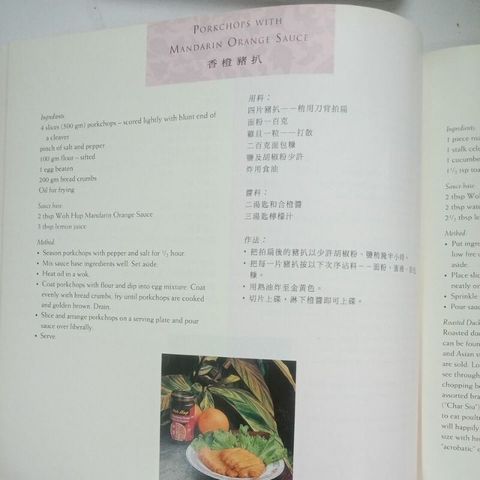 PORKCHOPS WITH
MANDARIN ORANGE SAUCE
香橙豬扒
Ingredients
4 slices (500 gm) porkchops – scored lightly with blunt end of
a cleaver
pinch of salt and pepper
100 gm flour – sifted
1 egg beaten
200 gm bread crumbs
Oil for frying
Sauce base
2 tbsp Woh Hup Mandarin Orange Sauce
3 tsp lemon juice
Method
• Season porkchops with pepper and salt for ½ hour.
• Mix sauce base ingredients well. Set aside.
• Heat oil in a wok.
• Coat porkchops with flour and dip into egg mixture. Coat
evenly with bread crumbs; fry until porkchops are cooked
and golden brown. Drain.
• Slice and arrange porkchops on a serving plate and pour
sauce over liberally.
• Serve.
用料：
四片豬扒——稍用刀背拍扁
面粉一百克
雞旦一粒——打散
二百克面包糠
鹽及胡椒粉少許
炸用食油
醬料：
二湯匙和合橙醬
三湯匙檸檬汁
作法：
• 把拍扁後的豬扒以少許胡椒粉、鹽稍醃半小時。
• 把每一片豬扒按以下次序沾料——面粉、蛋液、面包
糠。
• 用熱油炸至金黃色。
• 切片上碟，淋下橙醬即可上碟。
Ingredients
1 piece
1 stalk
1 cucumber
1½ tsp
Sauce base
2 tbsp
2 tbsp
2½ tsp
Method
• Put
low
aside.
• Place
neatly
• Sprinkle
• Pour
Roasted Duck
Roasted
can be
and Asian
are sold.
see through
chopping
assorted
("Char Siu")
to eat
will happily
size with
"acrobatic"